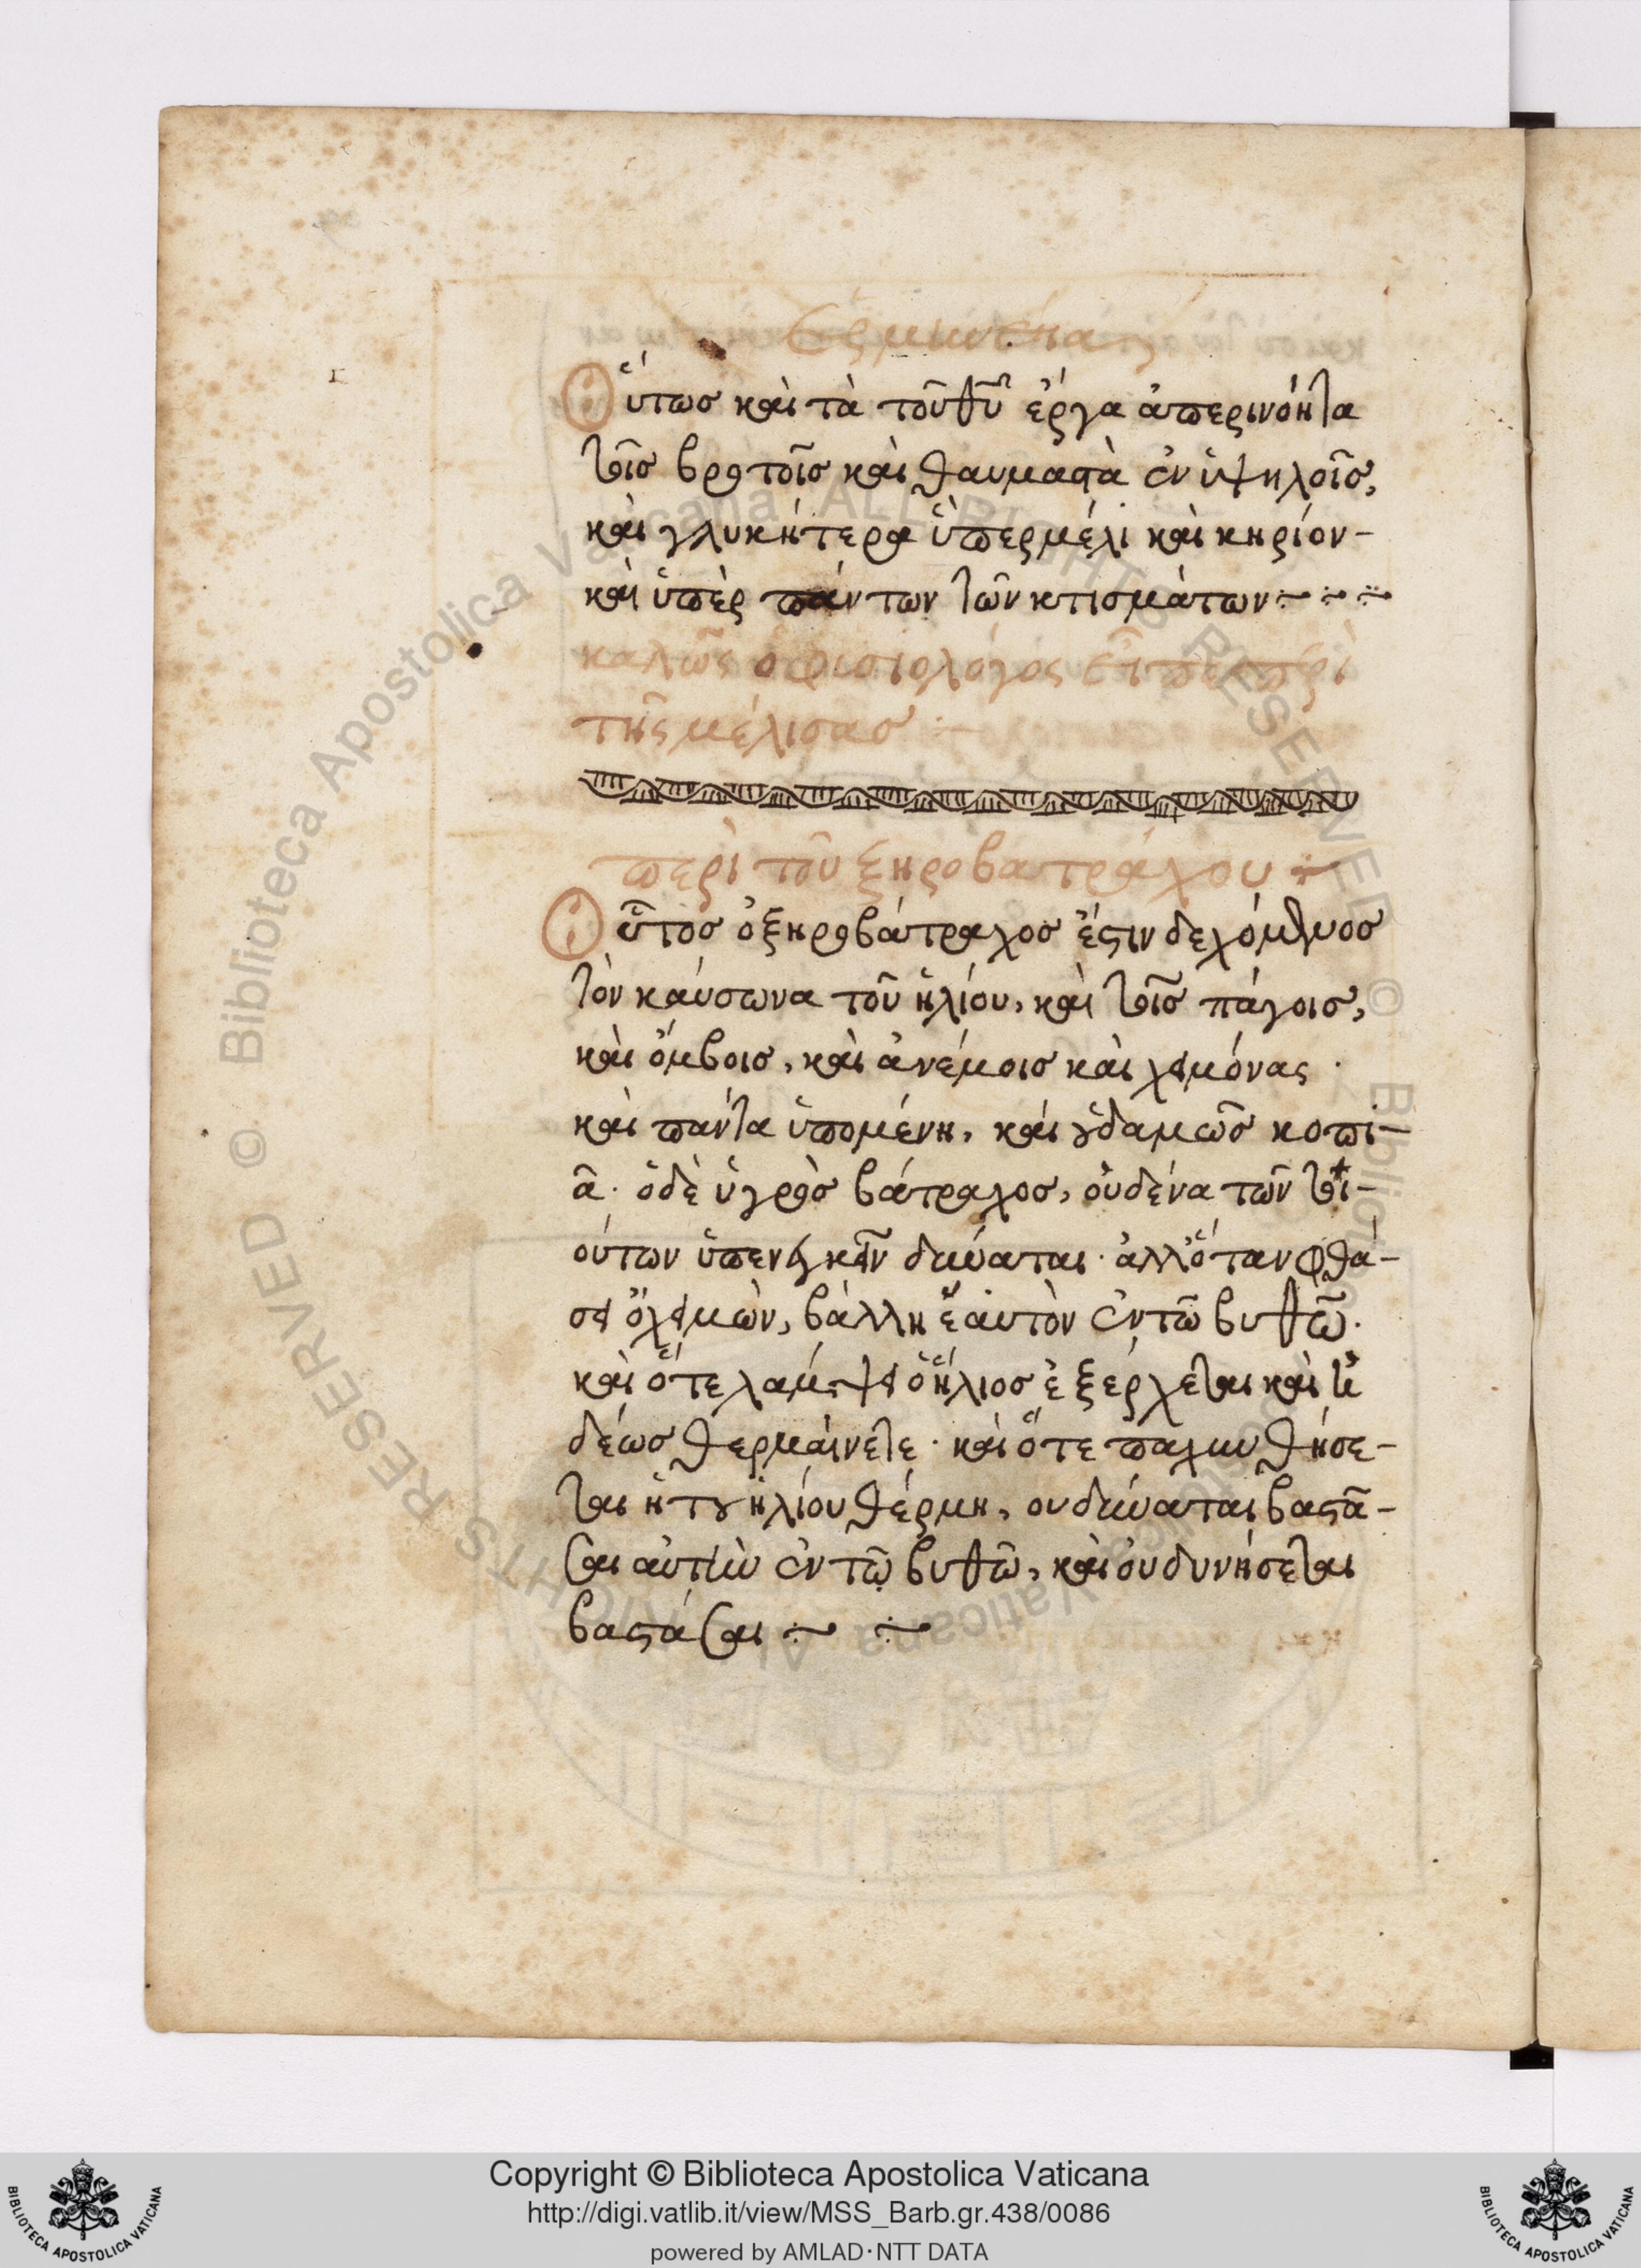 Ερμηνεία
Οὕτως καὶ τὰ τοῦ θῦ ἔργα ἀπερινόητα
τοῖς βροτοῖς καὶ θαυμαστὰ ἐν ὑψηλοῖς,
καὶ γλυκήτερα ὑπερμέλι καὶ κηρίον-
καὶ ὑπὲρ πάντων τῶν κτισμάτων
καλῶς ὁ φισιολόγος εἶπε περὶ
τῆς μέλισας :-
περὶ τοῦ ξηροβατράχου
Οὗτος ὁ ξηροβάτραχος ἔστιν δεχόμενος
τὸν καύσωνα τοῦ ἡλίου, καὶ τοῖς πάγοις,
καὶ ὄμβοις, καὶ ἀνέμοις καὶ χειμόνας ·
καὶ πάντα ὑπομένη, καὶ οὐδαμῶς κοπι-
ᾶ · ὁ δὲ ὑγρὸς βάτραχος, οὐδένα τῶν τοι-
ούτων ὑπενεγκεῖν δύναται · ἀλλ' ὅταν φθά-
σει ὁ χειμὼν, βάλλη ἑαυτὸν ἐν τῶ βυθῶ.
καὶ ὅτε λάμψει ὁ ἥλιος ἐξέρχεται καὶ
δέως θερμαίνετε · καὶ ὅτε παλυνθήσε-
ται ἡ τοῦ ἡλίου θέρμη, ου δύναται βαστᾶ-
σαι αὐτὴν ἐν τῶ βυθῶ, καὶ οὐ δυνήσεται
βαστάσαι
Copyright © Biblioteca Apostolica Vaticana
http://digi.vatlib.it/view/MSS_Barb.gr.438/0086
powered by AMLAD·NTT DATA
BIBLIOTECA APOSTOLICA VATICANA
BIBLIOTECA APOSTOLICA VATICANA